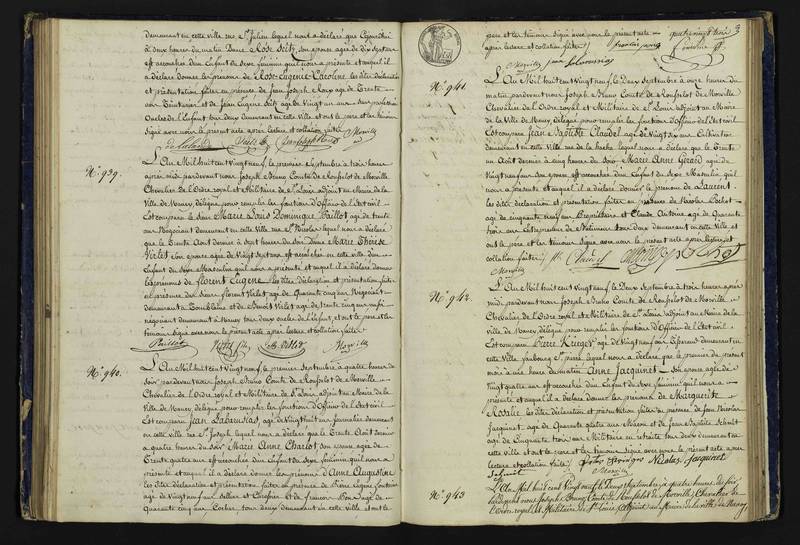 demeurant en cette ville rue St Julien lequel nous a déclaré que
à deux heures du matin Dame Rose Seitz, son épouse agée de dix sept ans
est accouchée d'un Enfant du sexe féminin qu'il nous a présenté et auquel il
a déclaré donner les prénoms de Rose Eugénie Caroline les dites déclaration
et présentation faites en présence de Jean Joseph Roux agé de Trente
ans Teinturier et de Jean Eugène Seitz agé de Vingt un ans
Oncles de l'Enfant tous deux demeurant en cette ville et ont les père et les témoins
Signé avec nous le présent acte après lecture et collation faites
N.° 939.
L'An Mil huit cent Vingt neuf, le premier Septembre à trois heures
après midi pardevant nous Joseph Bruno Comte de Rousselot de Morville
Chevalier de l'Ordre royal et Militaire de St Louis adjoint au Maire de la
Ville de Nancy, délégué pour remplir les fonctions d'Officier de l'Etat civil
Est comparu le Sieur Marie Louis Dominique Paillot agé de trente
ans Négociant demeurant en cette ville rue St Nicolas lequel nous a déclaré
que le Trente Août dernier à sept heures du soir Dame Marie Thérèse
Virlet son épouse agée de Vingt sept ans est accouchée en cette ville d'un
Enfant du sexe Masculin qu'il nous a présenté et auquel il a déclaré donner
les prénoms de Florent Eugène les dites déclaration et présentation faites
en présence des Sieurs Florent Virlet agé de Quarante cinq ans Négociant
demeurant à Tomblaine et de Benoit Virlet agé de trente cinq ans aussi
négociant demeurant à Nancy tous deux oncles de l'Enfant, et ont les père et les
témoins Signé avec nous le présent acte après lecture et collation faites
Paillot Virlet
Morville
N.° 940.
L'An Mil huit cent Vingt neuf, le premier Septembre à quatre heures du
soir pardevant nous Joseph Bruno Comte de Rousselot de Morville
Chevalier de l'Ordre royal et Militaire de St Louis adjoint au Maire de la
Ville de Nancy, délégué pour remplir les fonctions d'Officier de l'Etat civil
Est comparu Jean Labroussias, agé de Vingt huit ans Journalier demeurant
en cette ville rue St Joseph lequel nous a déclaré que le Trente Août dernier
à quatre heures du soir Marie Anne Charlot son épouse agée de
Trente quatre ans est accouchée d'un Enfant du sexe féminin qu'il nous a
présenté et auquel il a déclaré donner les prénoms d'Anne Augustine
les dites déclaration et présentation faites en présence de Pierre Eugène Fontaine
agé de Vingt neuf ans Sellier et Carossier et de François agé de
Quarante cinq ans Cocher tous deux demeurant en cette ville et ont le
père et les témoins Signé avec nous le présent acte
après lecture et collation faites
quatre vingt treize
Morville jean labroussias
N.° 941.
L'An Mil huit cent Vingt neuf, le Deux Septembre à onze heures du
matin pardevant nous Joseph Bruno Comte de Rousselot de Morville
Chevalier de l'Ordre royal et Militaire de St Louis adjoint au Maire
de la Ville de Nancy, délégué pour remplir les fonctions d'Officier de l'Etat civil
Est comparu Jean Baptiste Claudel agé de Vingt six ans Cultivateur
demeurant en cette Ville rue de la hache lequel nous a déclaré que le Trente
un Août dernier à cinq heures du soir Marie Anne Gérard agée de
Vingt neuf ans son épouse est accouchée d'un Enfant du sexe Masculin qu'il
nous a présenté et auquel il a déclaré donner le prénom de Laurent
les dites déclaration et présentation faites en présence de Nicolas Pochot
agé de cinquante cinq ans Propriétaire et Claude Antoine agé de Quarante
trois ans Entrepreneur de Batiments tous deux demeurant en cette Ville et
ont le père et les témoins Signé avec nous le présent acte après lecture et
collation faites Claudel
Morville
N.° 942.
L'An Mil huit cent Vingt neuf, le Deux Septembre à trois heures après
midi pardevant nous Joseph Bruno Comte de Rousselot de Morville
Chevalier de l'Ordre royal et Militaire de St Louis adjoint au Maire de la
Ville de Nancy, délégué pour remplir les fonctions d'Officier de l'Etat civil
Est comparu Pierre Krieger agé de Vingt neuf ans demeurant en
cette Ville faubourg St pierre lequel nous a déclaré que le premier du présent
mois à une heure du matin Anne Jacquinet son épouse agée de
Vingt quatre ans est accouchée d'un Enfant du Sexe féminin qu'il nous a
présenté et auquel il a déclaré donner les prénoms de Marguerite
Rosalie les dites déclaration et présentation faites en présence de Jean Nicolas
Jacquinet agé de Quarante quatre ans Maçon et de Jean Baptiste Schmitt
agé de Cinquante trois ans Militaire en retraite tous deux demeurant en
cette ville et ont le père et les témoins Signé avec nous le présent acte après
lecture et collation faites Nicolas Jacquinet
Schmitt Morville
N.° 943
L'An Mil huit cent Vingt neuf le Deux Septembre, à quatre heures du soir
pardevant nous Joseph Bruno Comte de Rousselot de Morville, Chevalier de
l'Ordre royal et Militaire de St Louis, adjoint au Maire de la ville de Nancy